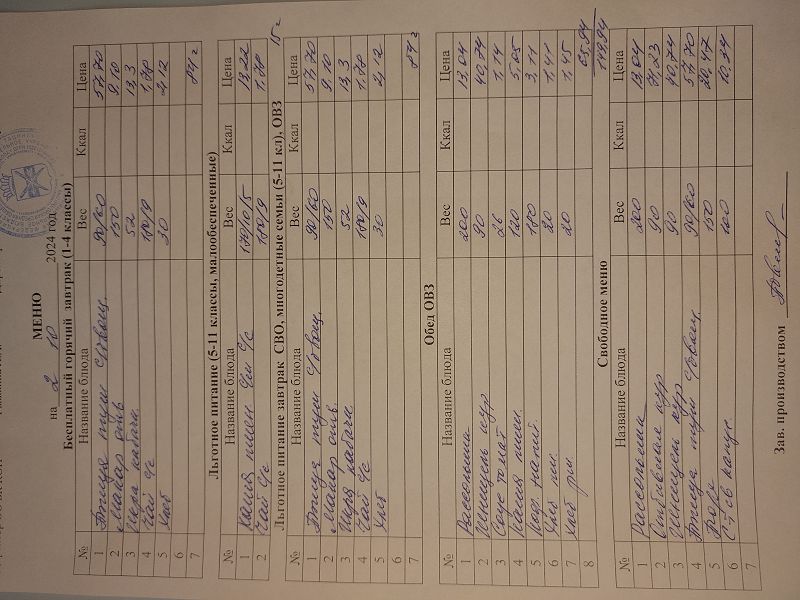 МЕНЮ
на 2 10 2024 год
Бесплатный горячий завтрак (1-4 классы)
№ Название блюда Вес Ккал Цена
1 Птица туш с/овощ. 90/60 57,70
2 Макар отв 150 9.10
3 Икра кабачк. 52 13,3
4 Чай с/с 180/9 1.78
5 Хлеб 30 2,12
6 84=
7
Льготное питание (5-11 классы, малообеспеченные)
№ Название блюда Вес Ккал Цена
1 Каша пшен с/м с/с 170/10/5 13,22
2 Чай с/с 180/9 1.78
15=
Льготное питание завтрак СВО, многодетные семьи (5-11 кл), ОВЗ
№ Название блюда Вес Ккал Цена
1 Птица туш с/овощ. 90/60 57,70
2 Макар отв 150 9.10
3 Икра кабачк. 52 13,3
4 Чай с/с 180/9 1.78
5 Хлеб 30 2,12
6
7 84=
Обед ОВЗ
№ Название блюда Вес Ккал Цена
1 Рассольник 200 13,04
2 Шницель кур 90 40,74
3 Соус томат 26 1.14
4 Каша пшен. 120 5,05
5 180 3,11
6 Хлеб пш. 20 1,41
7 Хлеб рж. 20 1,45
8 65,94
149,94
Свободное меню
№ Название блюда Вес Ккал Цена
1 Рассольник 200 13,04
2 кур 90
3 Шницель кур 90 40,74
4 Птица туш с/овощ. 90/60 57,70
5 150 20,47
6 капус. 100 10,34
7
Зав. производством